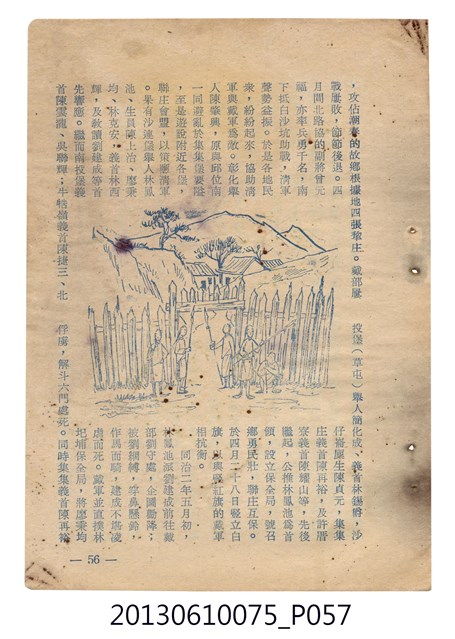 ，攻佔潮春的故鄉根據地四張犂庄。戴部屢
戰屢敗，節節後退。四
月間北路協的副將曾元
福，亦率兵勇千名，南
下抵白沙坑助戰，清軍
聲勢益振。於是各地民
衆，紛紛起來，協助清
軍與戴軍爲敵。彰化舉
人陳肇興，原與邱位南
一同避亂於集集堡
至是遊說附近各堡，
聯庄會盟，以策應清軍
。果有沙連堡舉人林鳳
池、生員陳上治、廖秉
均、林克安，義首林西
輝，及教讀劉建成等首
先響應。繼而南投堡義
首陳雲龍、吳聯輝；牛牯嶺義首陳捷三、北
投堡（草屯）舉人簡化成、義首林錫爵，沙
仔崙廩生陳貞元，集集
庄義首陳再裕，及許厝
寮義首陳耀山等，先後
繼起，公推林鳳池爲首
領，設立保全局，號召
鄉勇民壯，聯庄互保。
於四月二十八日竪立白
旗，以與竪紅旗的戴軍
相抗衡。
同治二年五月初，
林鳳池派劉建成前往戴
部劉守處，企圖勸降；
被劉綑縛，穿鼻懸鈴，
作馬而騎，建成不堪凌
虐而死。戴軍並直撲林
圯埔保全局，將廖秉均
俘虜，解斗六門處死。同時集集義首陳再裕
— 56 —
20130610075_P057